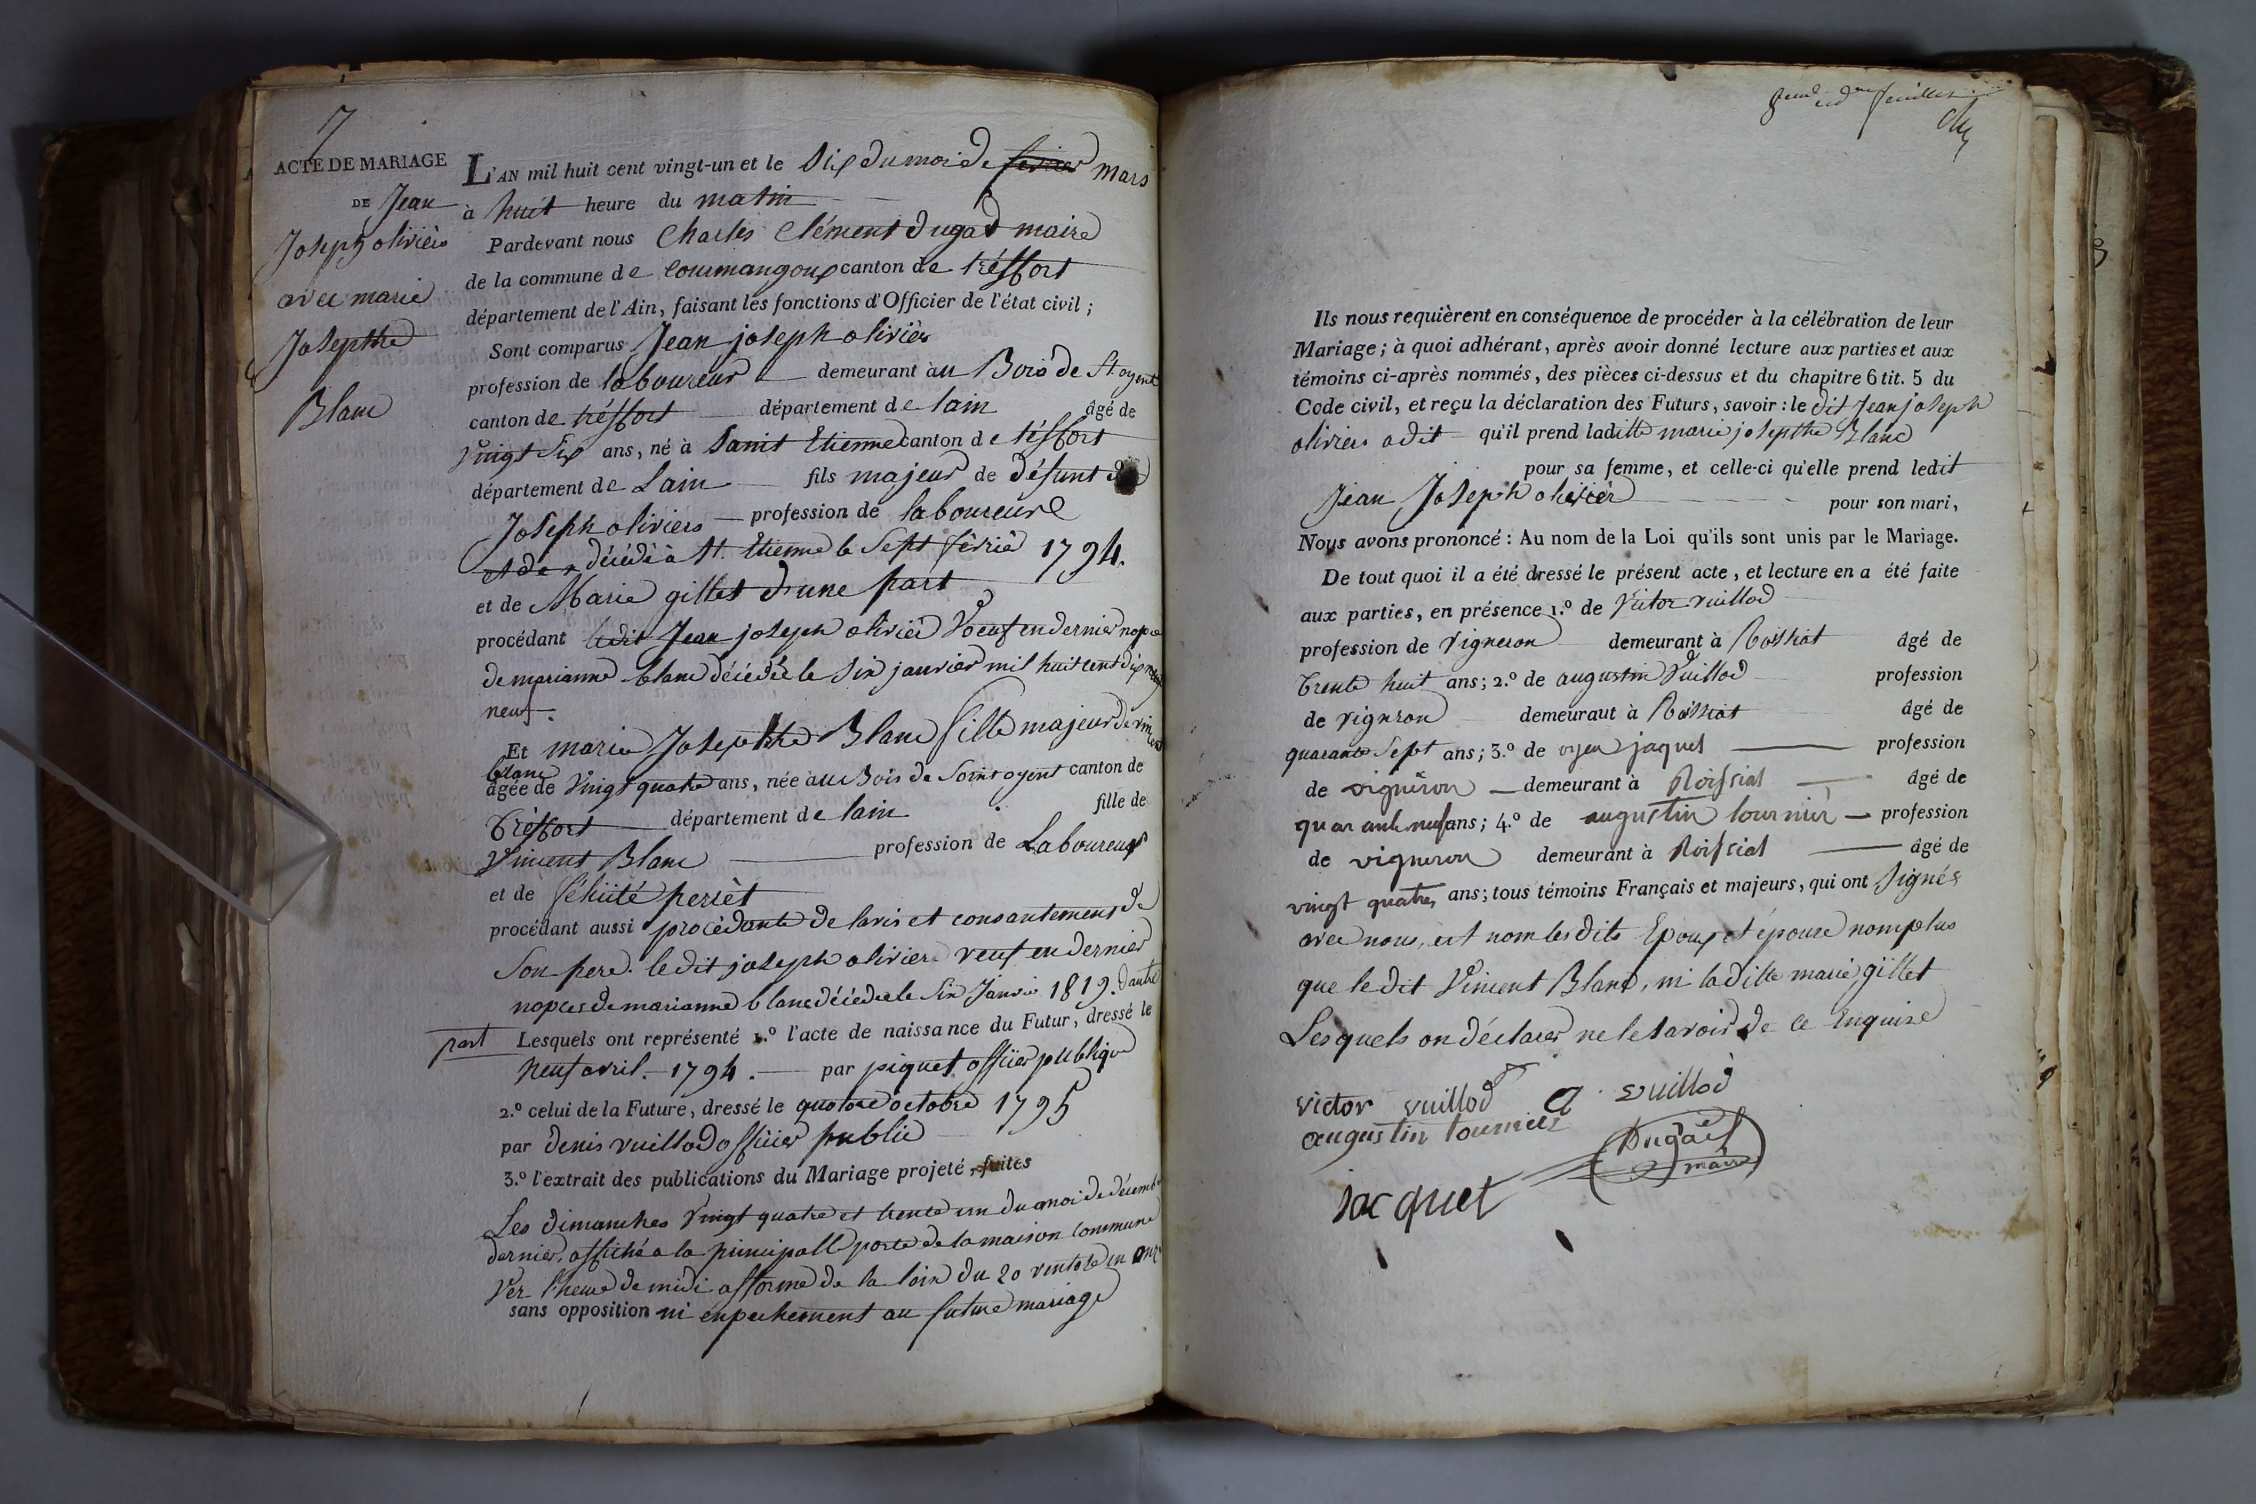 7
ACTE DE MARIAGE
DE Jean
Joseph olivièr
avec marie
Josepthe
Blanc
L'AN mil huit cent vingt-un et le dix du moi de fevrier mars
à huit heure du matin
Pardevant nous Charles Clément Dugad maire
de la commune de Courmangoux canton de tréffort
département de l'Ain, faisant les fonctions d'Officier de l'état civil ;
Sont comparus Jean joseph olivièr
profession de laboureur demeurant au Bois de St oyent
canton de tréffort département de lain âgé de
vingt six ans, né à Sanit Etienne canton de tréffort
département de Lain fils majeur de défunt
Joseph olivier profession de laboureure
et de décédé à St. Etienne le Sept févriè 1794.
et de Marie gillet d'une part
procédant ledit Jean joseph olivièr Voeuf en dernier nopce
de marianne blanc décédée le six janvier mil huit cent dix neuf
neuf.
Et marie Josepthe Blanc fille majeur de vincent
blanc
âgée de vingt quatre ans, née au Bois de Saint oyent canton de
Tréffort département de lain fille de
Vincent Blanc profession de Laboureur
et de félicité perièt
procédant aussi procédante de lavis et consantement de
Son pere. ledit joseph olivier veuf en dernier
nopces de marianne blanc décédée le Six Janvier 1819. dautre
part
Lesquels ont représenté 1.º l'acte de naissance du Futur, dressé le
neuf avril. 1794. par piquet officier publique
2.º celui de la Future, dressé le quatorze octobre 1795
par denis vuillod officier public
3.º l'extrait des publications du Mariage projeté, faites
Les dimanches vingt quatre et trente un du moi de décembre
dernier, affiché a la principalle porte de la maison commune
Ver l'heure de midi afforme de la loin du 20 ventose en onze
sans opposition ni enpechement au future mariage
feuillet
Ils nous requièrent en conséquence de procéder à la célébration de leur
Mariage ; à quoi adhérant, après avoir donné lecture aux parties et aux
témoins ci-après nommés, des pièces ci-dessus et du chapitre 6 tit. 5 du
Code civil, et reçu la déclaration des Futurs, savoir : le dit Jean joseph
olivier a dit qu'il prend laditte marie josepthe Blanc
pour sa femme, et celle-ci qu'elle prend ledit
Jean Joseph olivièr pour son mari,
Nous avons prononcé : Au nom de la Loi qu'ils sont unis par le Mariage.
De tout quoi il a été dressé le présent acte, et lecture en a été faite
aux parties, en présence 1.º de Victor vuillod
profession de vigneron demeurant à Roissiat âgé de
trente huit ans ; 2.º de augustin Vuillod profession
de vigneron demeuraut à Roissiat âgé de
quarante Sept ans ; 3.º de oyen jaquet profession
de vigneron demeurant à Roissiat âgé de
quarante neuf ans ; 4.º de augustin tournièr profession
de vigneron demeurant à Roissiat âgé de
vingt quatre ans ; tous témoins Français et majeurs, qui ont Signés
avec nous, est nom les dits Epoux et épouse nomplus
que le dit Vincent Blanc, ni ladille marie gillet
Lesquels on déclarer ne le savoir de ce Enquise
victor vuillod a vuillod
augustin tournièr
Dugad
maire
Jacquet